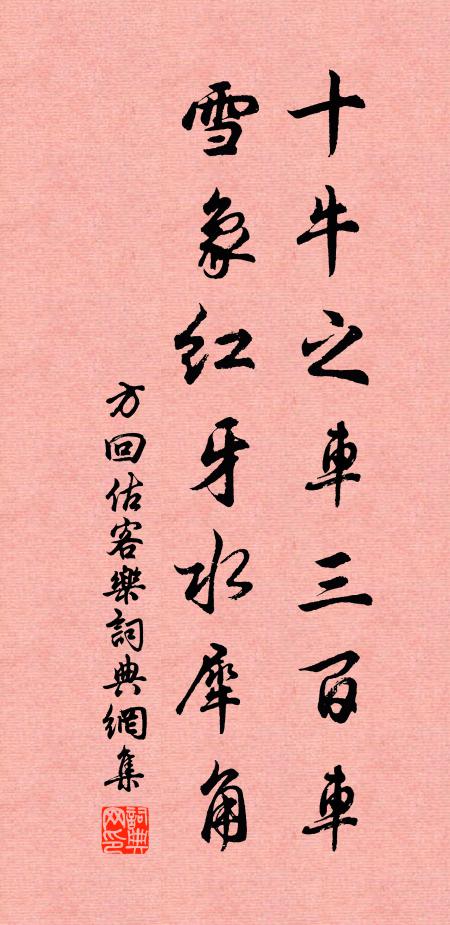 十牛之車三百車
雪象紅牙水犀角
方回估客樂詞典網集
詞典网印